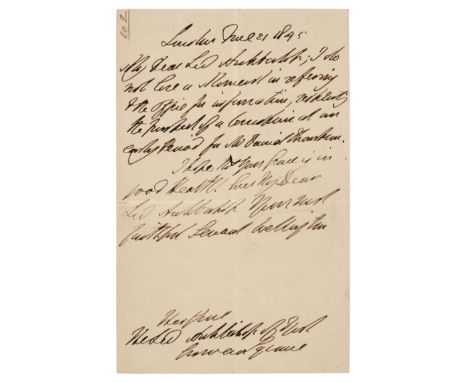 London June 21 1845
My Dear Lord Archbishop; I do
not lose a Moment in referring
to the Office for information, respecting
the prospect of a Commission at an
early Period for Mr
I hope that Your Grace is in
good Health. Ever My Dear
Lord Archbishop Your most
faithful Servant Wellington
His Grace
The Lord Archbishop of York
Grosvenor Square